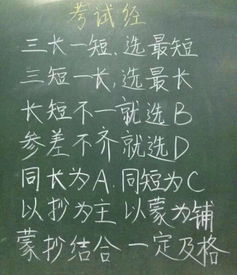 考试经
三长一短、选最短
三短一长，选最长
长短不一就选B
参差不齐就选D
同长为A.同短为C
以抄为主 以蒙为铺
蒙抄结合 一定及格